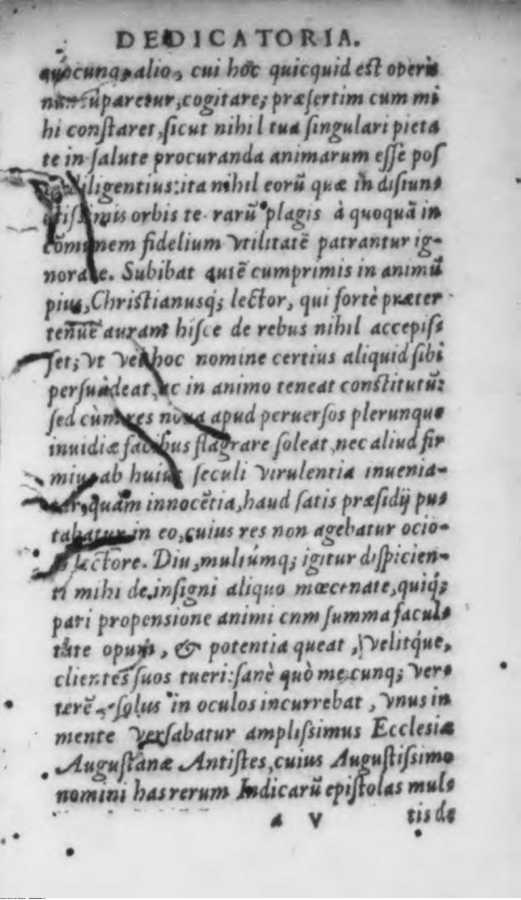 DEDICATORIA.
quocunq; alio, cui hoc quicquid est operis
nuncuparetur, cogitare; præsertim cum mi
hi constaret, sicut nihil tua singulari pieta
te in salute procuranda animarum esse pos
diligentius: ita nihil eorũ quæ in disiun⸗
ctissimis orbis terrarũ plagis à quoquã in
cõmunem fidelium vtilitatẽ patrantur ig⸗
norare. Subibat autẽ cumprimis in animũ
pius, Christianusq; lector, qui fortè præter
tenuẽ auram hisce de rebus nihil accepis⸗
set; vt vel hoc nomine certius aliquid sibi
persuadeat, ac in animo teneat constitutũ:
sed cùm res noua apud peruersos plerunque
inuidiæ facibus flagrare soleat, nec aliud fir
mius ab huius seculi virulentia inuenia⸗
tur, quàm innocẽtia, haud satis præsidij pu⸗
tabatur in eo, cuius res non agebatur ocio⸗
so lectore. Diu, multúmq; igitur dispicien⸗
ti mihi de insigni aliquo mœcenate, quiq;
pari propensione animi cnm summa facul⸗
tate opum, & potentia queat, velitque,
clientes suos tueri: sanè quò mecunq; ver⸗
terẽ, solus in oculos incurrebat, vnus in
mente versabatur amplissimus Ecclesiæ
Augustanæ Antistes, cuius Augustissimo
nomini has rerum Indicarũ epistolas mul⸗
a v tis de